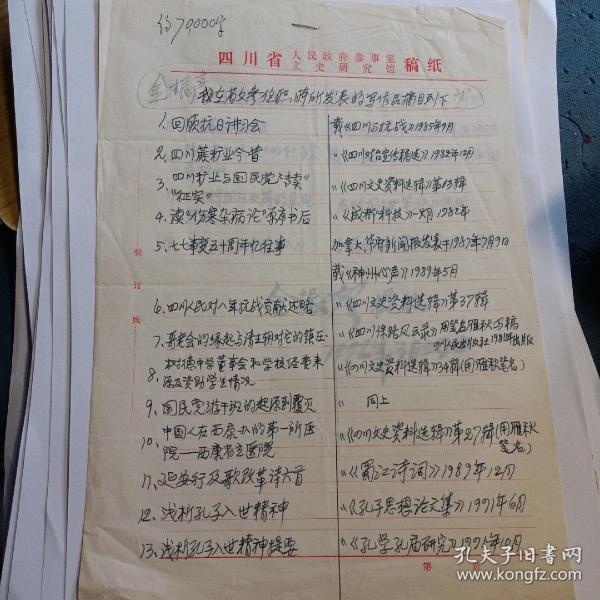 约79000字
四川省 人民政府参事室 文史研究馆 稿纸
我在省文参任职时所发表的写作品摘目列下
1. 回顾抗日讲习会 载《四川与抗战》1985年9月
2. 四川蔴业今昔 〃《四川对台宣传稿选》1982年12月
3. 四川扩业与国民党 〃《四川文史资料选辑》第13辑
“征实”
4. 读“伤寒杂病论”家秀书后 〃《成都科技》一灼 1982年
5. 七七事变五十周年忆往事 加拿大华府新闻报发表于1987年7月9日
载《神州心声》1989年5月
6. 四川人民对八年抗战贡献述略 〃《四川文史资料选辑》第37辑
7. 哥老会的缘起与清王朝对它的镇压 〃《四川保路风云录》用笔名雅秋 四川人民出版社1981年出版
8. 树德中学董事会和学校经费来 〃《四川文史资料选辑》34辑(用雁秋笔名)
源及资助学生情况
9. 国民党游干班的起源到覆灭 〃 同上
10. 中国人在西康办的第一所医 〃《四川文史资料选辑》第27辑(用雁秋笔名)
院——西康省立医院
11. 延安行及歌改革诗六首 〃《蜀江诗词》1989年12月
12. 浅析孔子入世精神 〃《孔子思想论文集》1991年6月
13. 浅析孔子入世精神提要 〃《孔学孔庙研究》1991年10月
装订线
第
孔夫子旧书网
www.kongfz.com